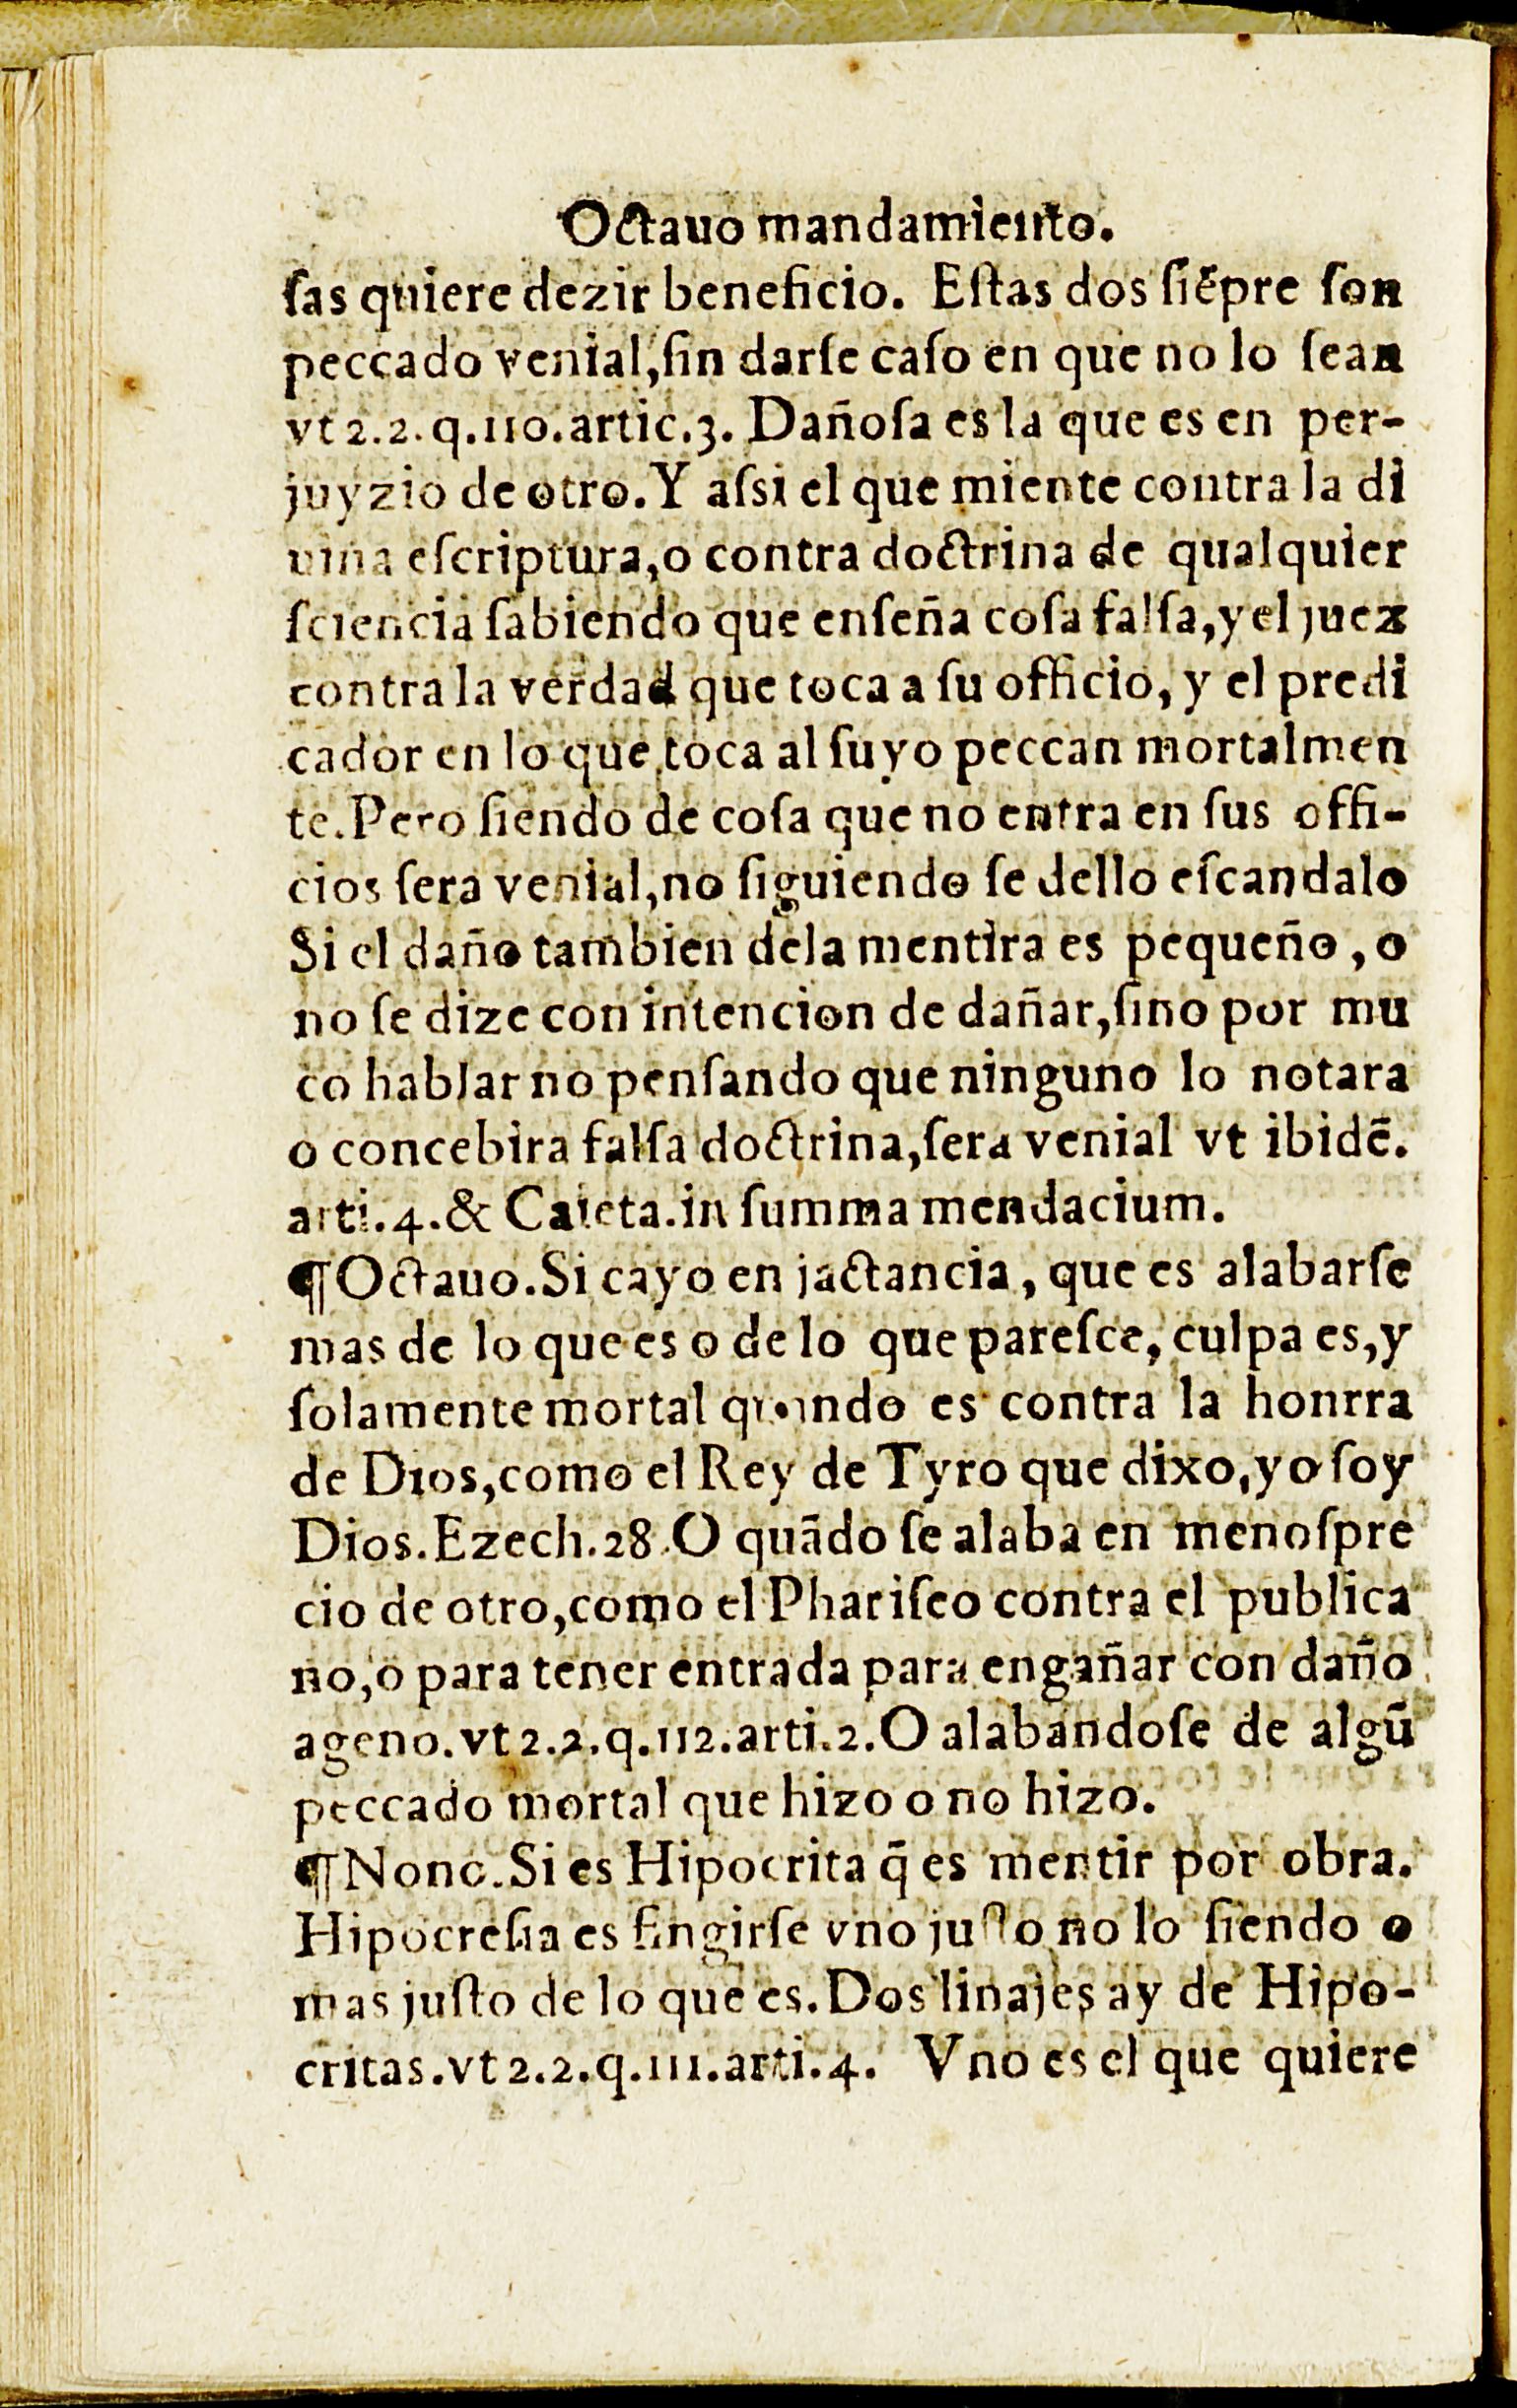 Octauo mandamiento.
ſas quiere dezir beneficio. Eſtas dos ſiẽpre ſon
peccado venial, ſin darſe caſo en que no lo ſean
vt 2.2. q.110. artic.3. Dañoſa es la que es en per-
juyzio de otro. Y aſsi el que miente contra la di
uina eſcriptura, o contra doctrina de qualquier
ſciencia ſabiendo que enſeña coſa falſa, y el juez
contra la verdad que toca a ſu officio, y el predi
cador en lo que toca al ſuyo peccan mortalmen
te. Pero ſiendo de coſa que no entra en ſus offi-
cios ſera venial, no ſiguiendo ſe dello eſcandalo
Si el daño tambien dela mentira es pequeño, o
no ſe dize con intencion de dañar, ſino por mu
co hablar no penſando que ninguno lo notara
o concebira falſa doctrina, ſera venial vt ibidẽ.
arti.4. & Caieta. in ſumma mendacium.
¶ Octauo. Si cayo en jactancia, que es alabarſe
mas de lo que es o de lo que pareſce, culpa es, y
ſolamente mortal quando es contra la honrra
de Dios, como el Rey de Tyro que dixo, yo ſoy
Dios. Ezech.28. O quãdo ſe alaba en menoſpre
cio de otro, como el Phariſeo contra el publica
no, o para tener entrada para engañar con daño
ageno. vt 2.2. q.112. arti.2. O alabandoſe de algũ
peccado mortal que hizo o no hizo.
¶ Nono. Si es Hipocrita q̃ es mentir por obra.
Hipocreſia es fingirſe vno juſto no lo ſiendo o
mas juſto de lo que es. Dos linajes ay de Hipo-
critas. vt 2.2. q.111. arti.4. Vno es el que quiere